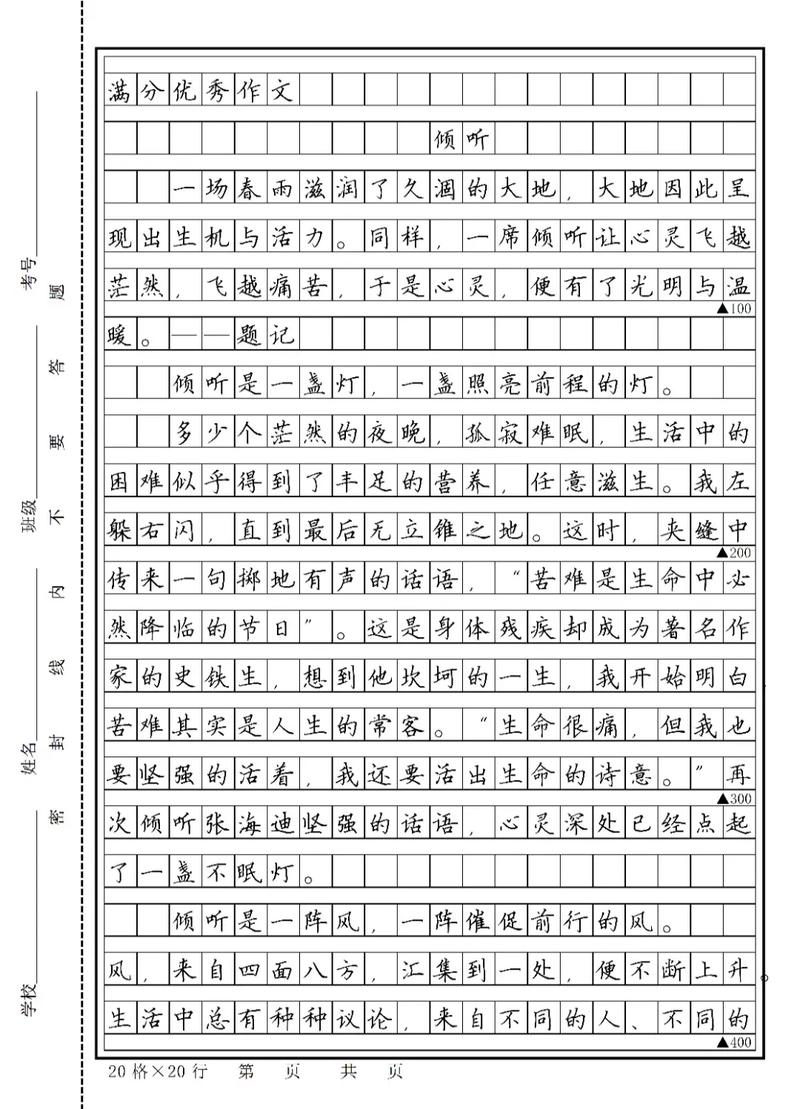 满分优秀作文
倾听
一场春雨滋润了久涸的大地，大地因此呈
现出生机与活力。同样，一席倾听让心灵飞越
茫然，飞越痛苦，于是心灵，便有了光明与温
▲100
暖。——题记
倾听是一盏灯，一盏照亮前程的灯。
多少个茫然的夜晚，孤寂难眠，生活中的
困难似乎得到了丰足的营养，任意滋生。我左
躲右闪，直到最后无立锥之地。这时，夹缝中
▲200
传来一句掷地有声的话语，“苦难是生命中必
然降临的节日”。这是身体残疾却成为著名作
家的史铁生，想到他坎坷的一生，我开始明白
苦难其实是人生的常客。“生命很痛，但我也
要坚强的活着，我还要活出生命的诗意。”再
▲300
次倾听张海迪坚强的话语，心灵深处已经点起
了一盏不眠灯。
倾听是一阵风，一阵催促前行的风。
风，来自四面八方，汇集到一处，便不断上升。
生活中总有种种议论，来自不同的人、不同的
▲400
20格×20行 第 页 共 页
考号
班级
姓名
学校
密封线内不要答题